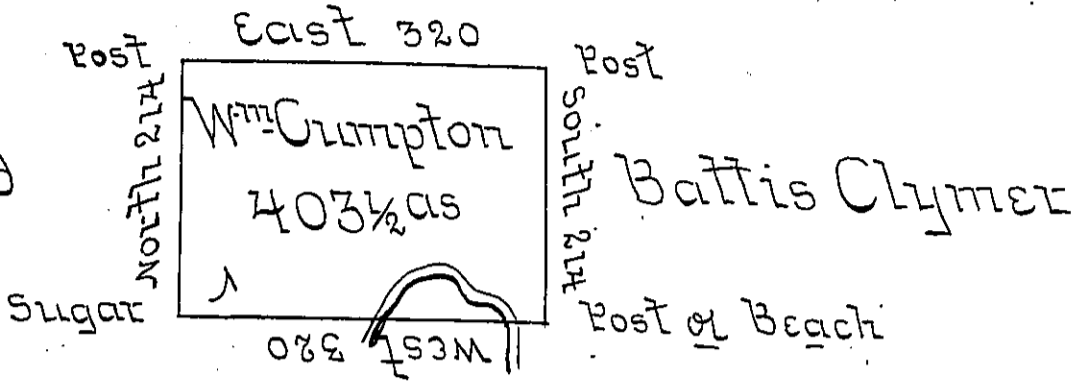 East 320
Post
Post
North 214
Wm Crumpton
South 214
Battis Clymer
403½ as
Sugar
Post or Beach
West 320